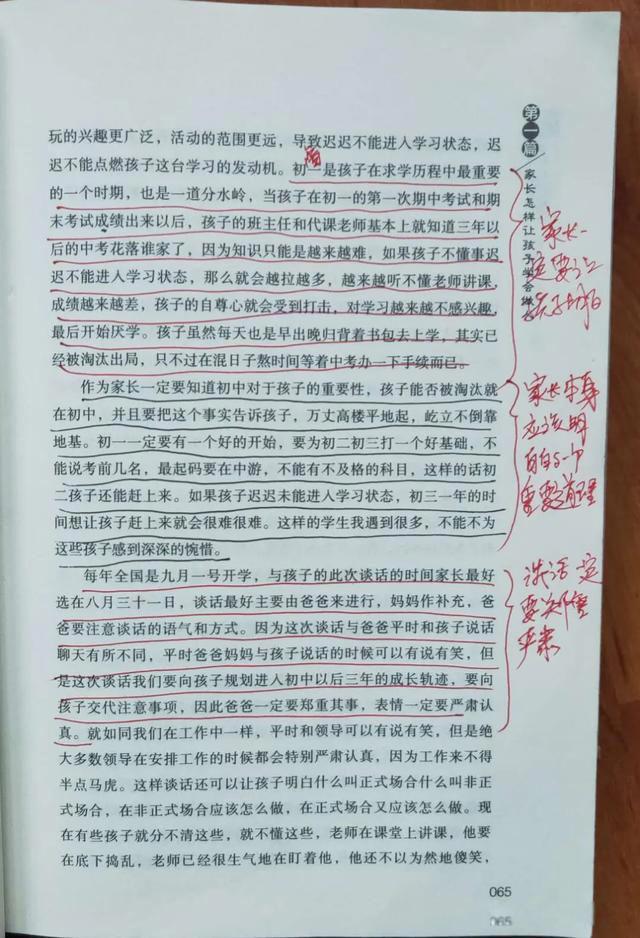 玩的兴趣更广泛，活动的范围更远，导致迟迟不能进入学习状态，迟
迟不能点燃孩子这台学习的发动机。初一是孩子在求学历程中最重要
的一个时期，也是一道分水岭，当孩子在初一的第一次期中考试和期
末考试成绩出来以后，孩子的班主任和代课老师基本上就知道三年以
后的中考花落谁家了，因为知识只能是越来越难，如果孩子不懂事迟
迟不能进入学习状态，那么就会越拉越多，越来越听不懂老师讲课，
成绩越来越差，孩子的自尊心就会受到打击，对学习越来越不感兴趣，
最后开始厌学。孩子虽然每天也是早出晚归背着书包去上学，其实已
经被淘汰出局，只不过在混日子熬时间等着中考办一下手续而已。
作为家长一定要知道初中对于孩子的重要性，孩子能否被淘汰就
在初中，并且要把这个事实告诉孩子，万丈高楼平地起，屹立不倒靠
地基。初一一定要有一个好的开始，要为初二初三打一个好基础，不
能说考前几名，最起码要在中游，不能有不及格的科目，这样的话初
二孩子还能赶上来。如果孩子迟迟未能进入学习状态，初三一年的时
间想让孩子赶上来就会很难很难。这样的学生我遇到很多，不能不为
这些孩子感到深深的惋惜。
每年全国是九月一号开学，与孩子的此次谈话的时间家长最好
选在八月三十一日，谈话最好主要由爸爸来进行，妈妈作补充，爸
爸要注意谈话的语气和方式。因为这次谈话与爸爸平时和孩子说话
聊天有所不同，平时爸爸妈妈与孩子说话的时候可以有说有笑，但
是这次谈话我们要向孩子规划进入初中以后三年的成长轨迹，要向
孩子交代注意事项，因此爸爸一定要郑重其事，表情一定要严肃认
真。就如同我们在工作中一样，平时和领导可以有说有笑，但是绝
大多数领导在安排工作的时候都会特别严肃认真，因为工作来不得
半点马虎。这样谈话还可以让孩子明白什么叫正式场合什么叫非正
式场合，在非正式场合应该怎么做，在正式场合又应该怎么做。现
在有些孩子就分不清这些，就不懂这些，老师在课堂上讲课，他要
在底下捣乱，老师已经很生气地在盯着他，他还不以为然地傻笑，
第一篇
家长怎样让孩子学会
家长一
定要让
孩子
家长本身
应该明
白
重要
谈话一定
要郑重
严肃
065